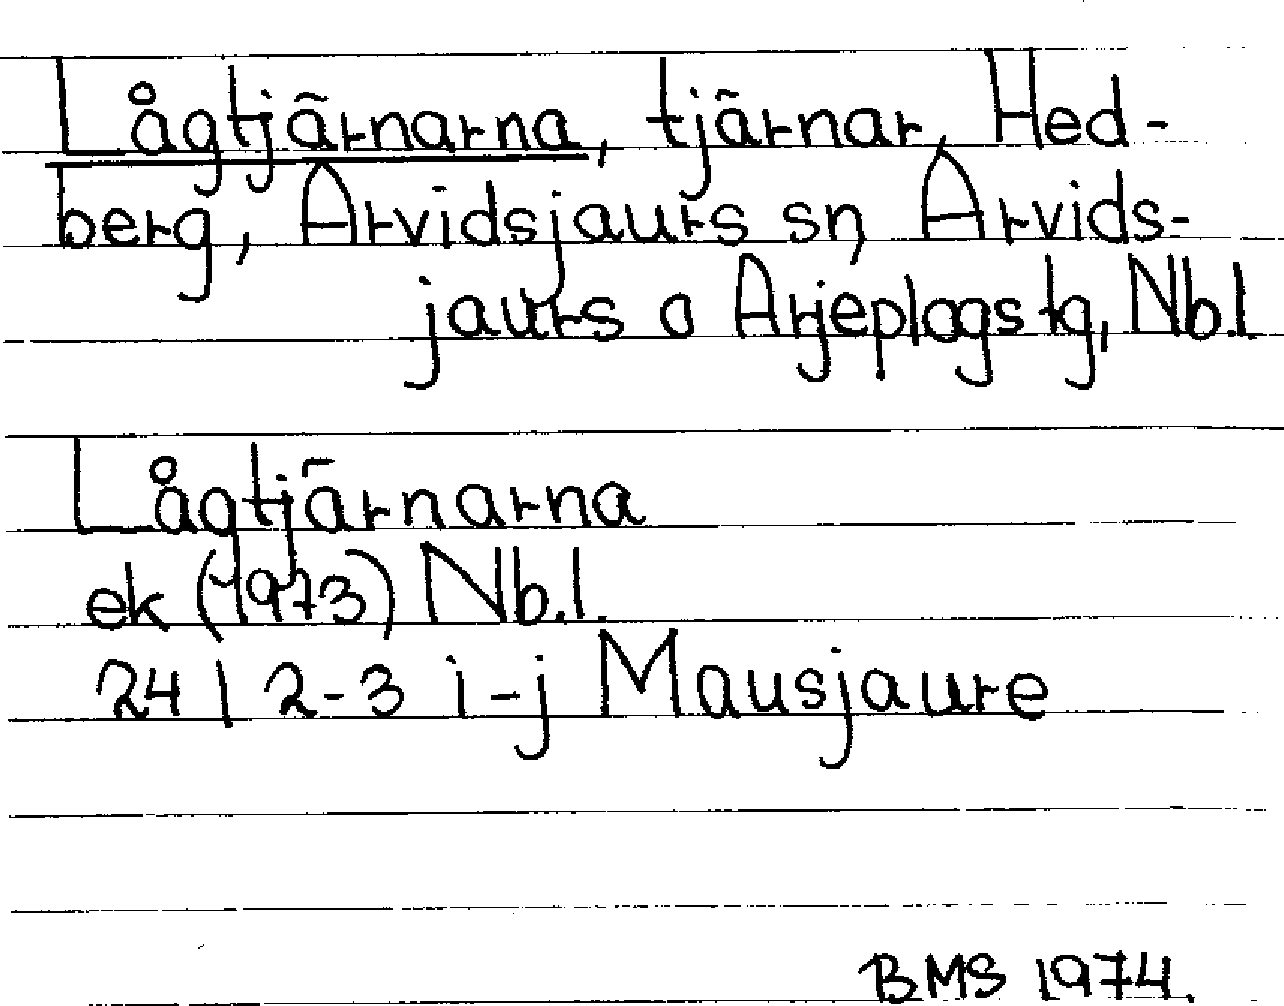 Lågtjärnarna, tjärnar, Hed-
berg, Arvidsjaurs sn, Arvids-
jaurs o Arjeplogs tg, Nb.l
Lågtjärnarna
ek (1973) Nb.l.
24 I 2-3 i-j Mausjaure
BMS 1974.